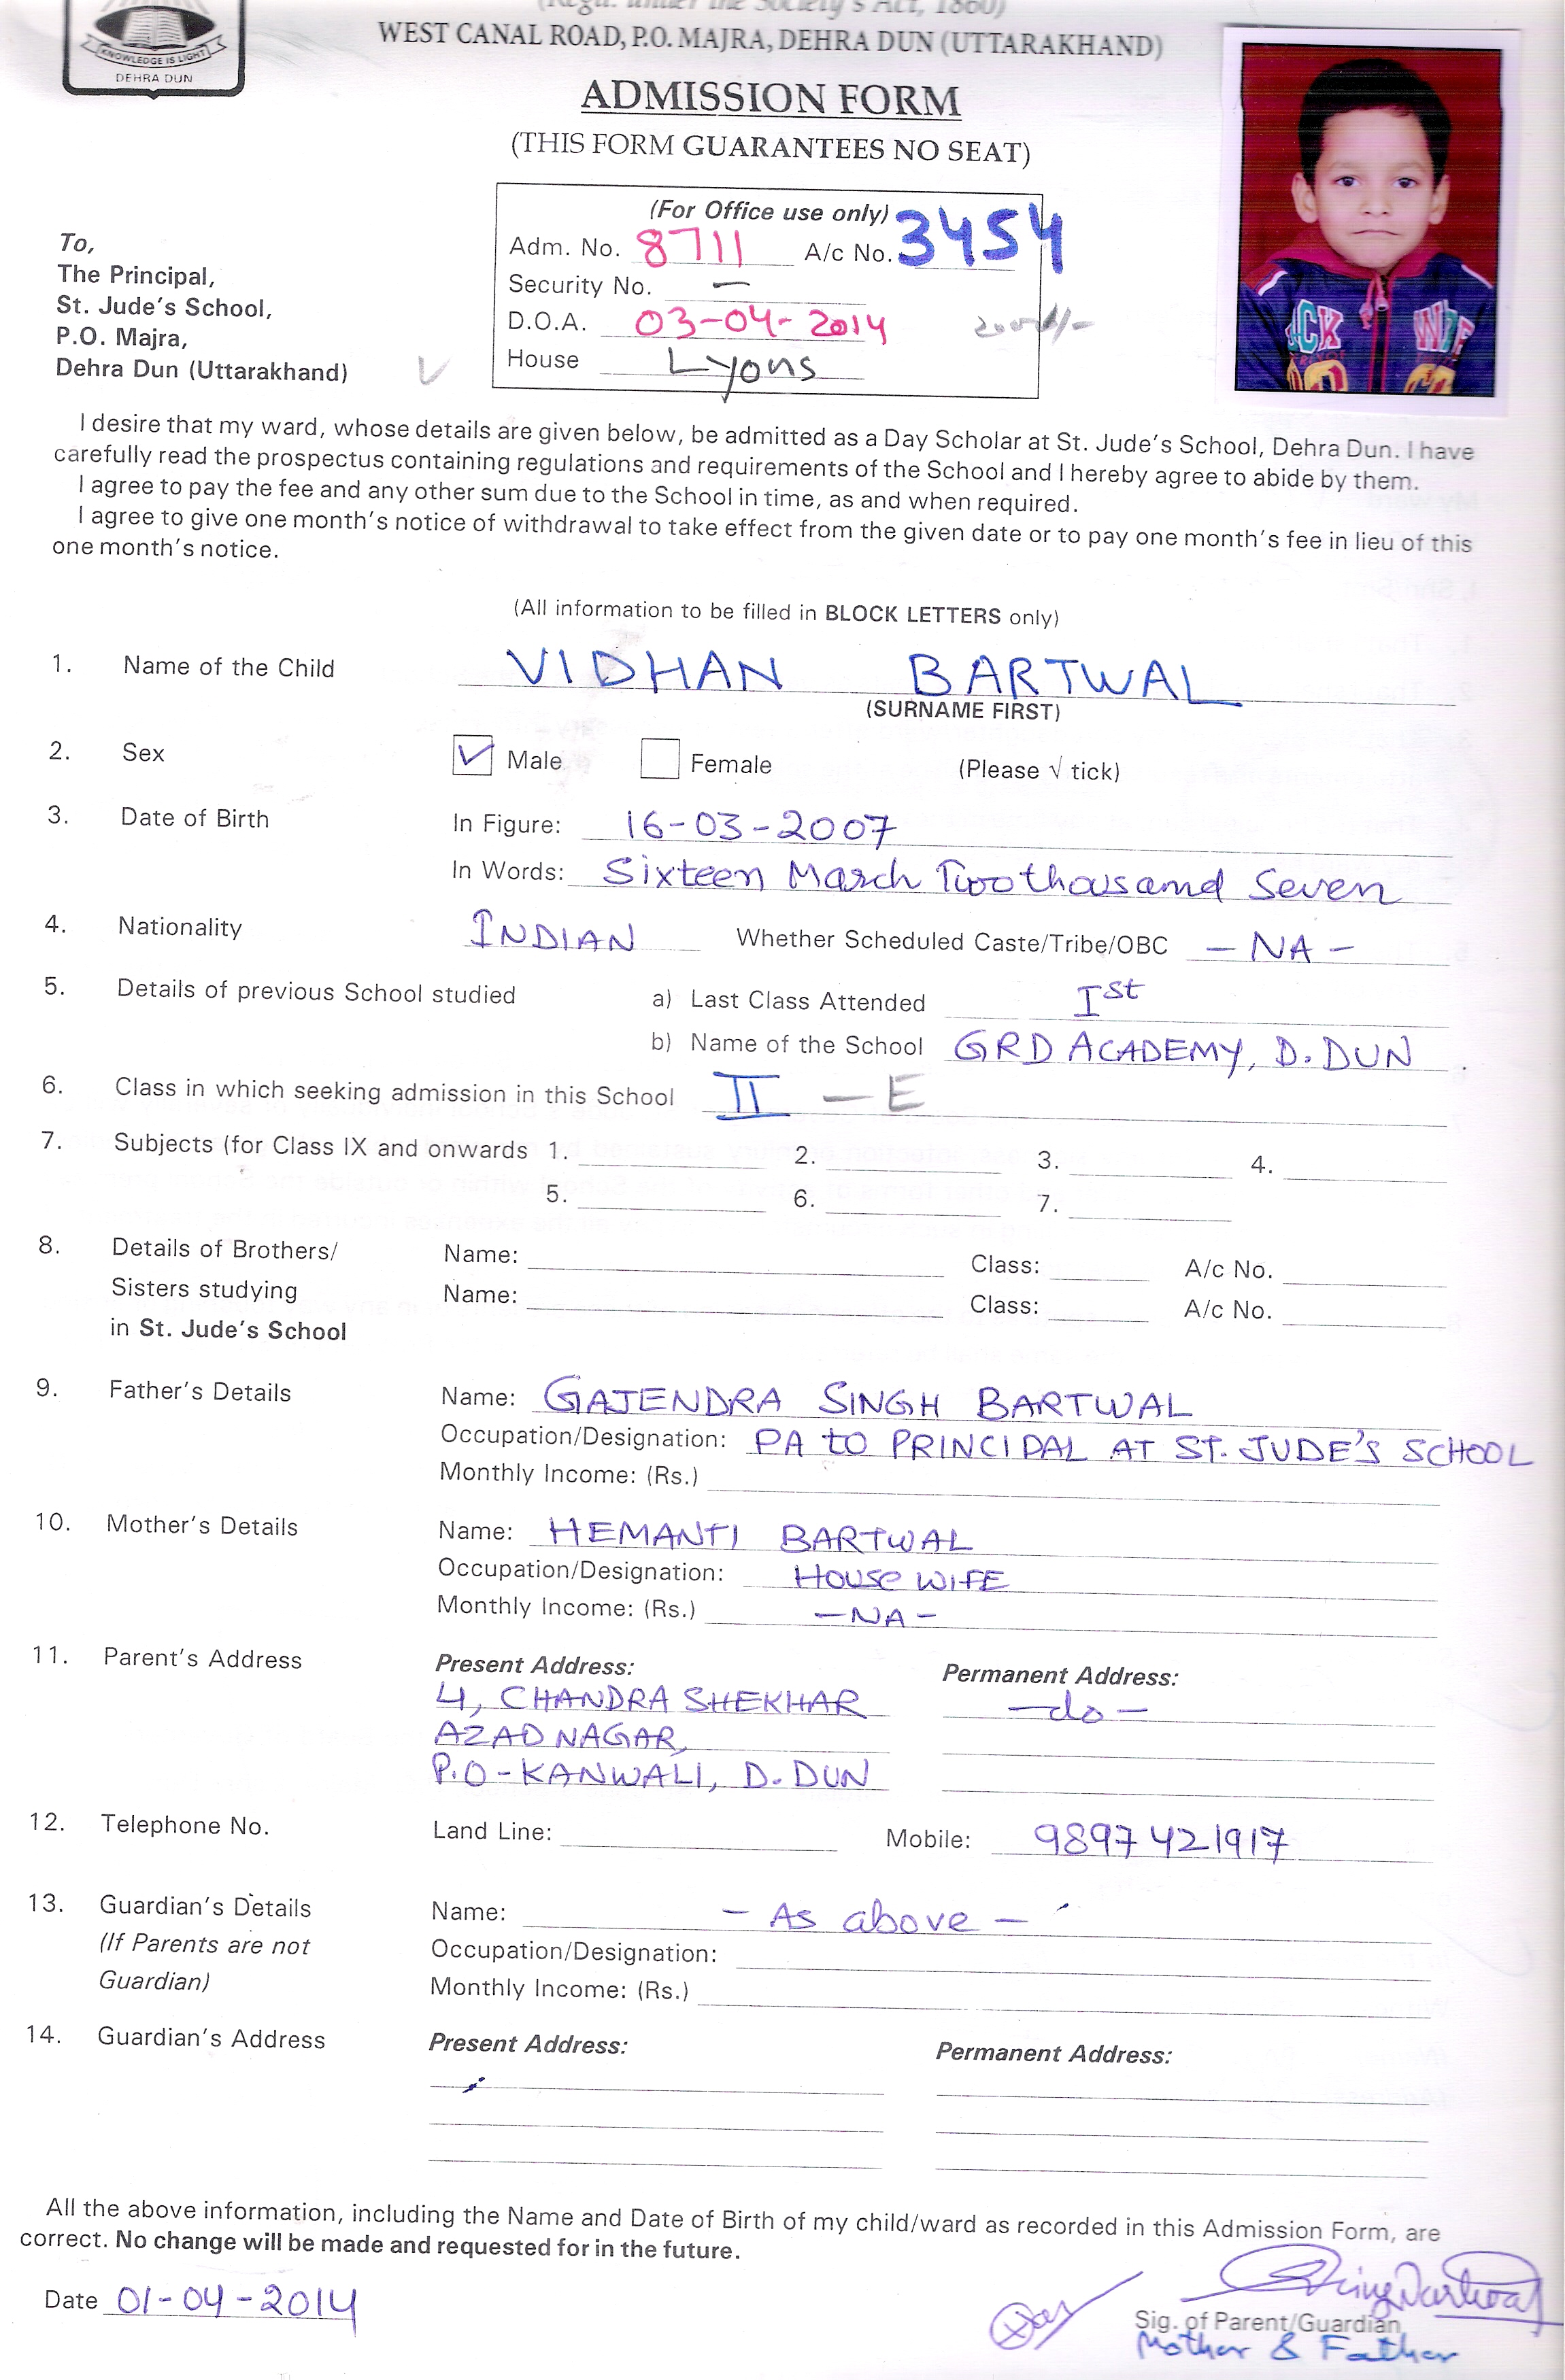 (Regd. under the Society's Act, 1860)
WEST CANAL ROAD, P.O. MAJRA, DEHRA DUN (UTTARAKHAND)
KNOWLEDGE IS LIGHT
DEHRA DUN
ADMISSION FORM
(THIS FORM GUARANTEES NO SEAT)
(For Office use only)
Adm. No. 8711 A/c No. 3454
Security No. —
D.O.A. 03-04-2014
House Lyons
To,
The Principal,
St. Jude's School,
P.O. Majra,
Dehra Dun (Uttarakhand)
I desire that my ward, whose details are given below, be admitted as a Day Scholar at St. Jude's School, Dehra Dun. I have
carefully read the prospectus containing regulations and requirements of the School and I hereby agree to abide by them.
I agree to pay the fee and any other sum due to the School in time, as and when required.
I agree to give one month's notice of withdrawal to take effect from the given date or to pay one month's fee in lieu of this
one month's notice.
(All information to be filled in BLOCK LETTERS only)
1. Name of the Child VIDHAN BARTWAL
(SURNAME FIRST)
2. Sex ✓ Male Female (Please √ tick)
3. Date of Birth In Figure: 16-03-2007
In Words: Sixteen March Two thousand Seven
4. Nationality INDIAN Whether Scheduled Caste/Tribe/OBC — NA —
5. Details of previous School studied a) Last Class Attended Ist
b) Name of the School GRD ACADEMY, D. DUN
6. Class in which seeking admission in this School II — E
7. Subjects (for Class IX and onwards 1. 2. 3. 4.
5. 6. 7.
8. Details of Brothers/ Name: Class: A/c No.
Sisters studying Name: Class: A/c No.
in St. Jude's School
9. Father's Details Name: GAJENDRA SINGH BARTWAL
Occupation/Designation: PA to PRINCIPAL AT ST. JUDE'S SCHOOL
Monthly Income: (Rs.)
10. Mother's Details Name: HEMANTI BARTWAL
Occupation/Designation: HOUSE WIFE
Monthly Income: (Rs.) —NA—
11. Parent's Address Present Address: Permanent Address:
4, CHANDRA SHEKHAR —do—
AZAD NAGAR,
P.O-KANWALI, D. DUN
12. Telephone No. Land Line: Mobile: 9897421917
13. Guardian's Details Name: — As above —
(If Parents are not Occupation/Designation:
Guardian) Monthly Income: (Rs.)
14. Guardian's Address Present Address: Permanent Address:
All the above information, including the Name and Date of Birth of my child/ward as recorded in this Admission Form, are
correct. No change will be made and requested for in the future.
Date 01-04-2014
Sig. of Parent/Guardian
Mother & Father